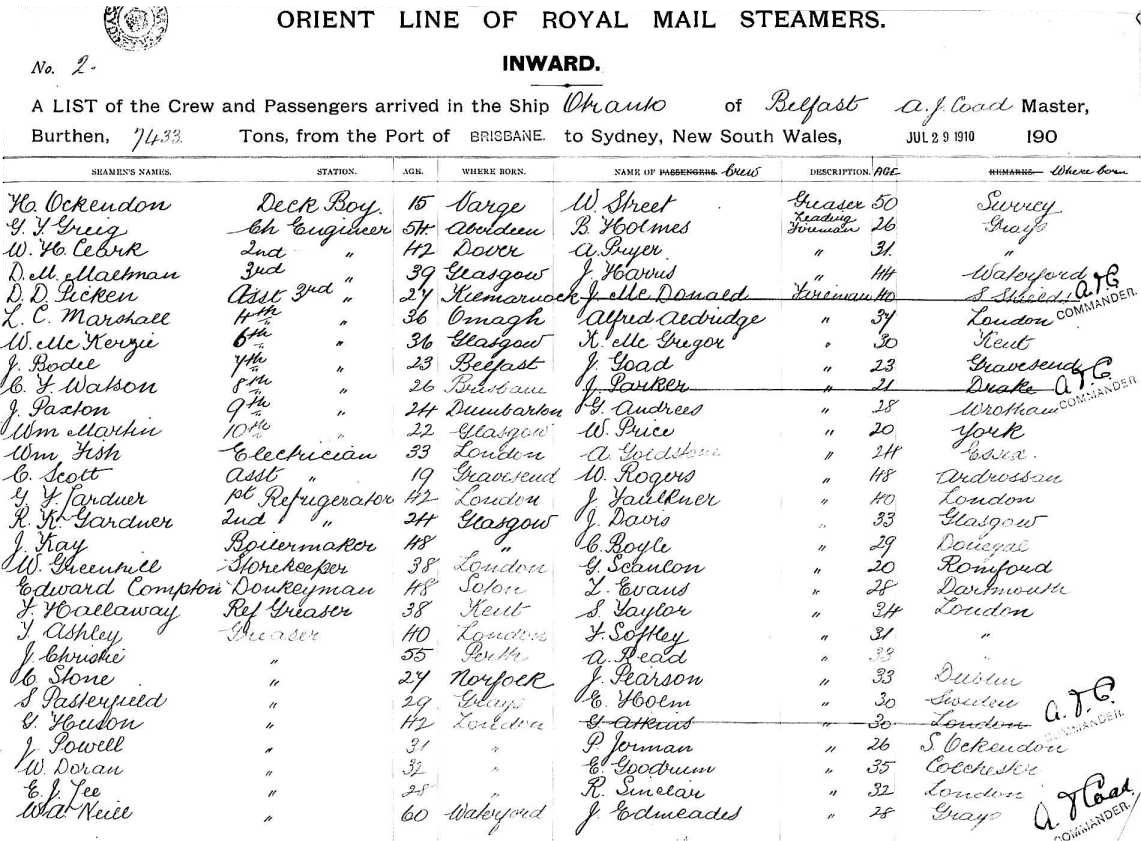 ORIENT LINE OF ROYAL MAIL STEAMERS.
No. 2.
INWARD.
A LIST of the Crew and Passengers arrived in the Ship Otranto of Belfast A. J. Coad Master,
Burthen, 7433 Tons, from the Port of BRISBANE. to Sydney, New South Wales, JUL 29 1910 190
SEAMEN'S NAMES. STATION. AGE. WHERE BORN. NAME OF PASSENGERS Crew DESCRIPTION. AGE REMARKS Where born
H. Ockendon Deck Boy. 15 Varge W. Street Greaser 50 Surrey
G. Y. Greig Ch Engineer 54 Aberdeen B. Holmes Leading Fireman 26 Grays
W. H. Clark 2nd " 42 Dover A. Pryer " 31. "
D. M. 3rd 39 Glasgow J. Harris " 44 Waterford
D. D. Picken Asst 3rd " 27 Kilmarnock J. Mc Donald Fireman 40 S Shields A J C COMMANDER.
L. C. Marshall 4th " 36 Omagh Alfred Aldridge " 37 London
W. Mc Kenzie 6th " 36 Glasgow K. Mc Gregor " 30 Kent
J. Bodel 7th " 23 Belfast J. Goad " 23 Gravesend
C. F. Watson 8th " 26 Brisbane J. Parker " 21 Drake A J C COMMANDER
J. Paxton 9th " 24 Dumbarton G. Andrews " 28 Wrotham
Wm Martin 10th " 22 Glasgow W. Price " 20 York
Wm Fish Electrician 33 London A. Goldstone " 24 Essex.
C. Scott Asst " 19 Gravesend W. Rogers " 48 Ardrossan
G. F. Lardner 1st Refrigerator 42 London J. Faulkner " 40 London
R. K. Gardner 2nd " 24 Glasgow J. Davis " 33 Glasgow
J. Kay Boilermaker 48 " C. Boyle " 29 Donegal
W. Greenhill Storekeeper 38 London G. Scanlon " 20 Romford
Edward Compton Donkeyman 48 Soton L. Evans " 28 Dartmouth
F. Hallaway Ref Greaser 38 Kent S. Taylor " 34 London
T. Ashley Greaser 40 London F. Softley " 31 "
J. Christie " 55 Perth A. Read " 33 "
C. Stone " 27 Norfolk J. Pearson " 33 Dublin
S Pasterfield " 29 Grays E. Holm " 30 Sweden
G. Huson " 42 London G Atkins " 30 London A. J. C. COMMANDER.
J. Powell " 31 " P. Jorman " 26 S. Ockendon
W. Doran " 32 " E. Goodrum " 35 Colchester
E. J. Lee " 28 " R. Sinclair " 32 London
W. A. Neill " 60 Waterford J. Edmeades " 28 Grays A J Coad COMMANDER.